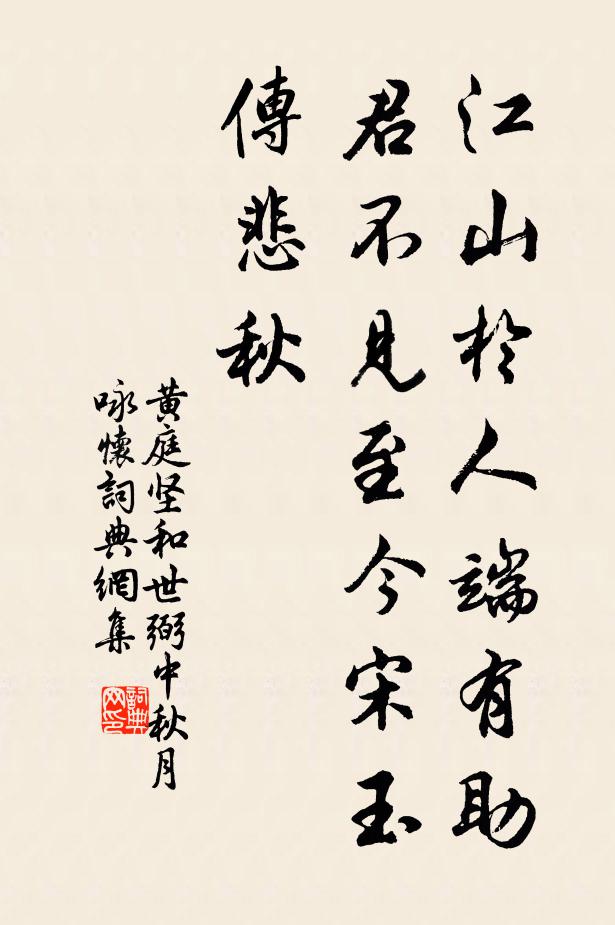 江山於人端有助
君不見至今宋玉
傳悲秋
黄庭坚和世弼中秋月
咏懷詞典網集
詞典
网印